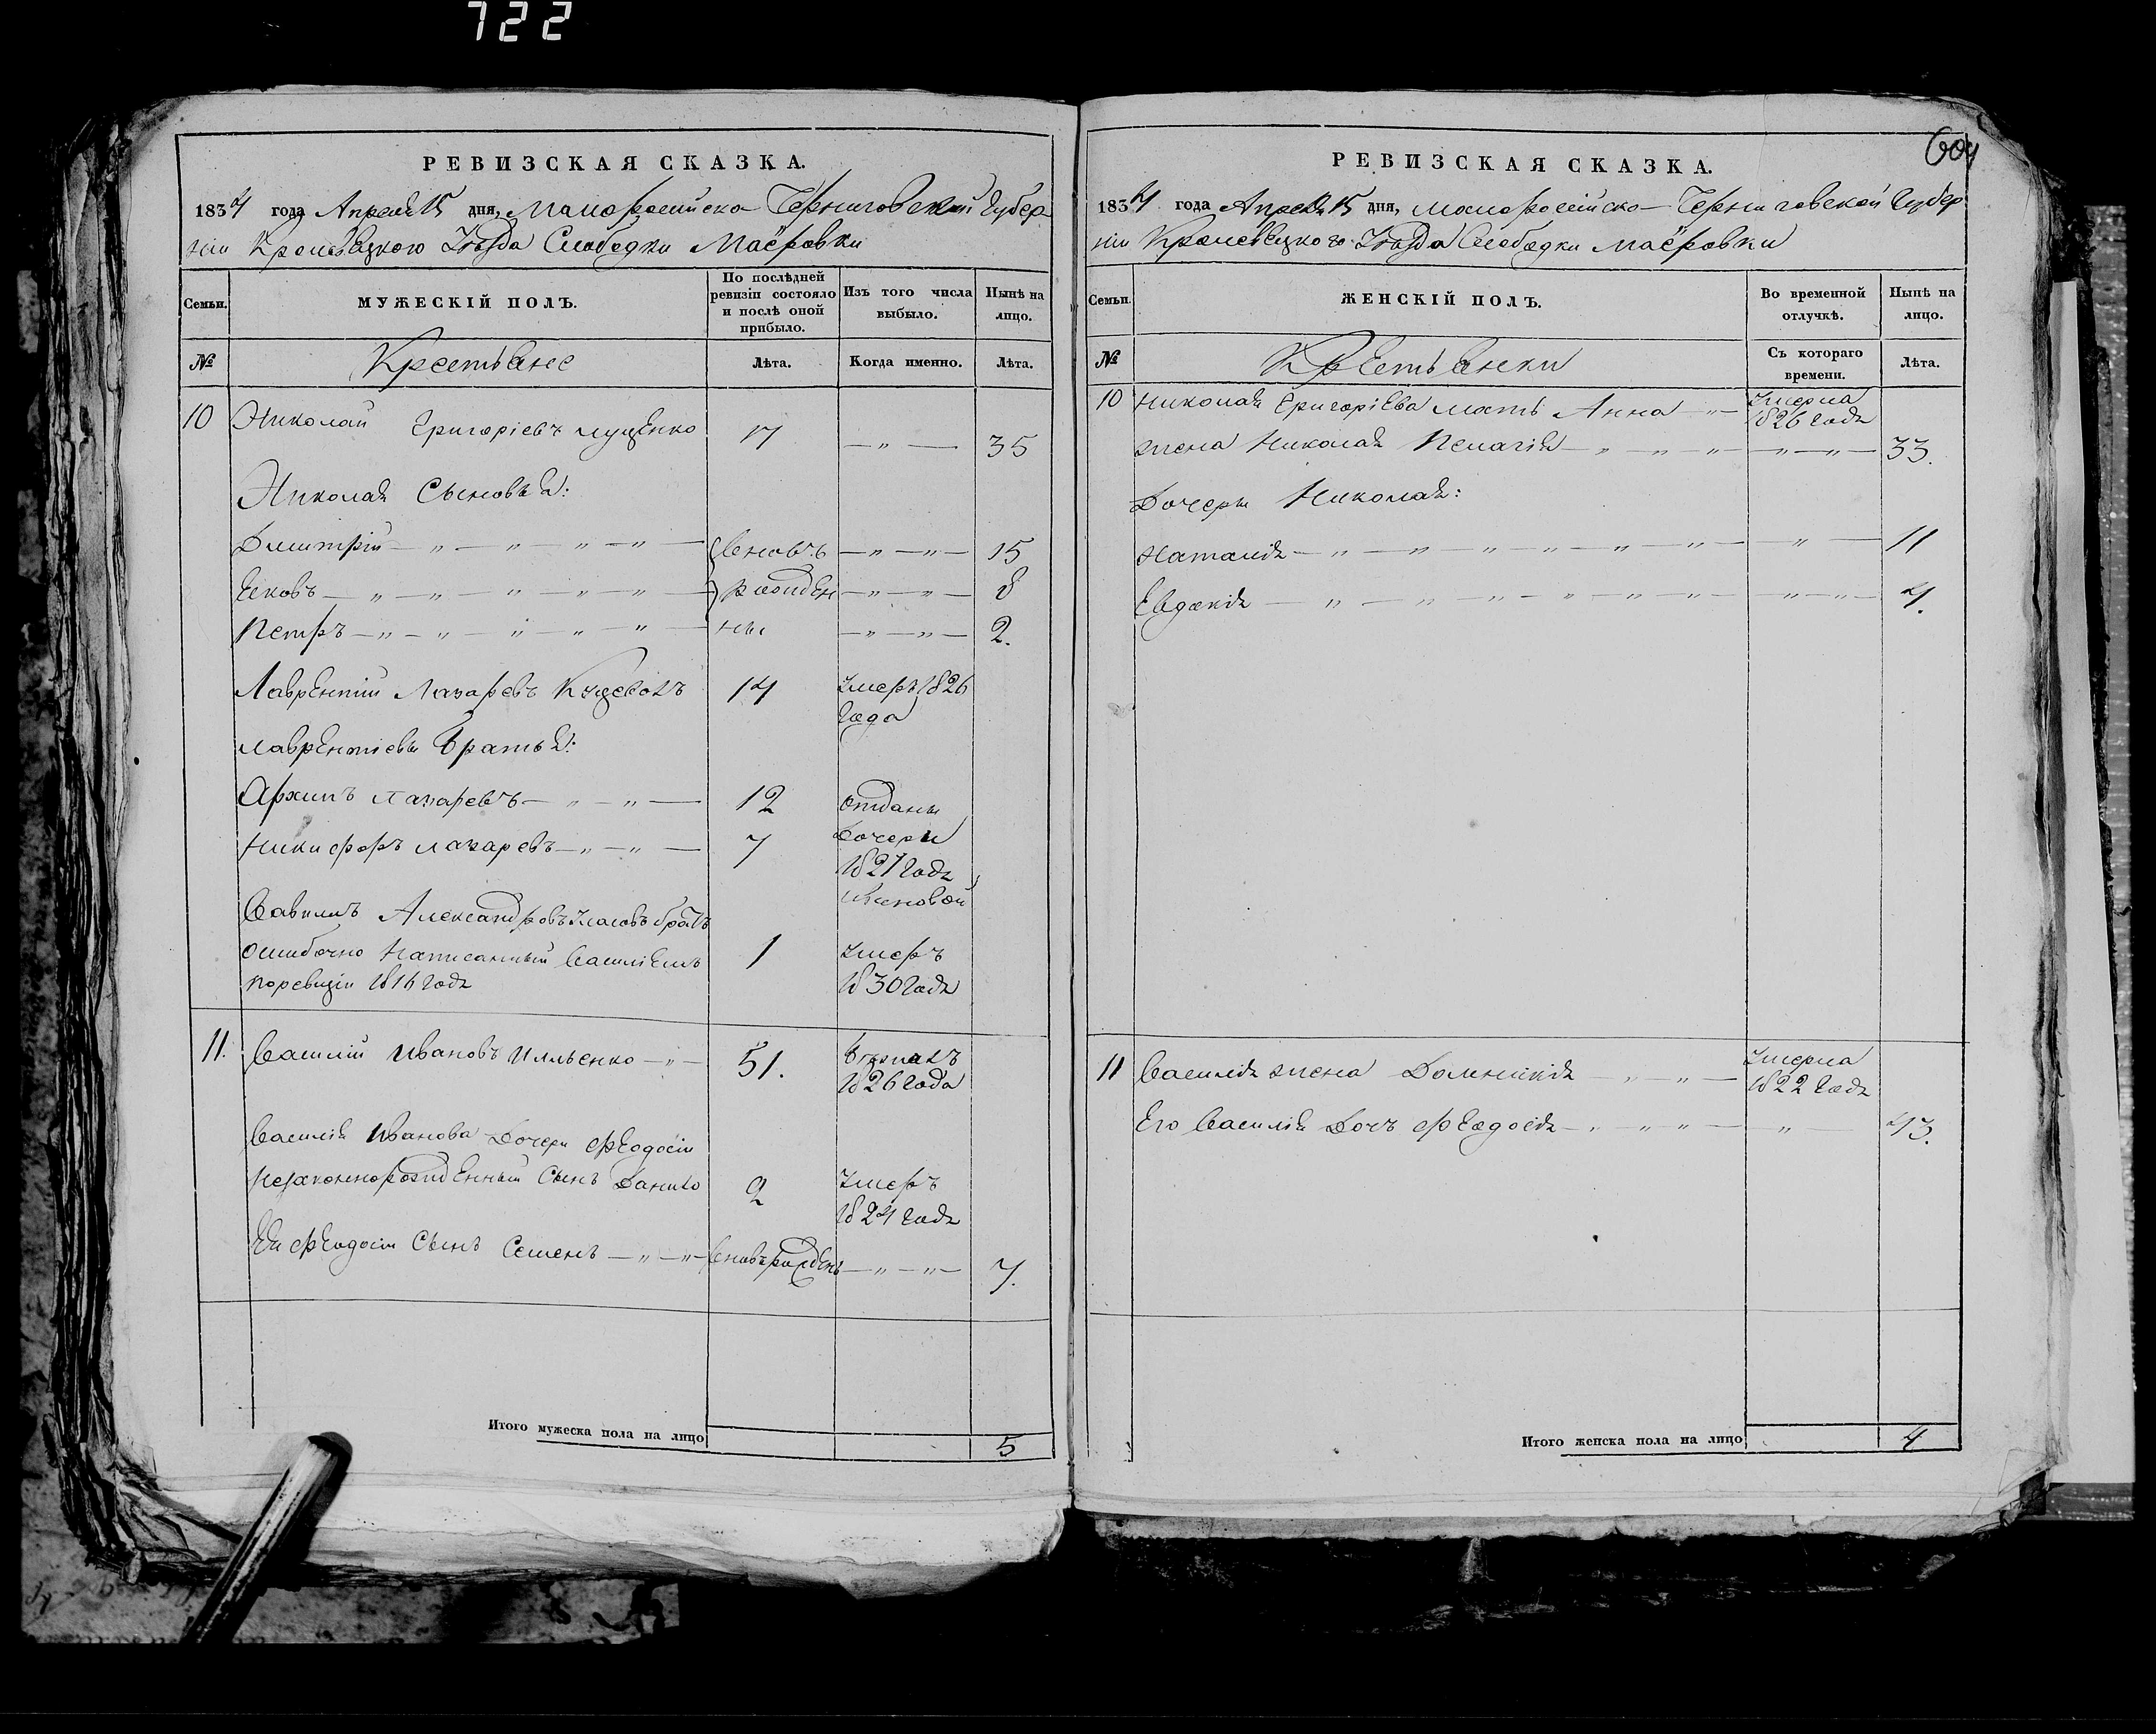 722
РЕВИЗСКАЯ СКАЗКА.
1834 года Апреля 15 дня, Малоросійско-Черниговской Губер
ніи Кролевецкого Уѣзда Слободки Маёровки
Семьи.
МУЖЕСКІЙ ПОЛЪ.
По послѣдней ревизіи состояло и послѣ оной прибыло.
Изъ того числа выбыло.
Нынѣ на лицо.
№
Крестьяне
Лѣта.
Когда именно.
Лѣта.
10 Николай Григоріевъ Луценко 17 — „ — 35
Николая Сыновья:
Дмитрій — „ — „ — „ — „ — вновь — „ — „ — 15
Яковъ — „ — „ — „ — „ — „ — рожден — „ — „ — 8
Петръ — „ — „ — „ — „ — „ — ны — „ — „ — 2.
Лаврентій Лазаревъ 14 Умеръ 1826
года
Лаврентіевы Братья:
Архипъ Лазаревъ — „ — „ — 12 отданы
Никифоръ Лазаревъ — „ — „ — 7 дочери
1827 года
Александровъ братъ
ошибочно написанный Василіемъ 1 Умеръ
по ревизіи 1816 года 1830 года
11. Василій Ивановъ Ильенко — „ — 51.
1826 года
Василія Иванова дочери Феодосіи
незаконнорожденный Сынъ Данило 2 Умеръ
1824 года
Ей Феодосіи Сынъ Семенъ — „ — „ — вновь рожденъ — „ — „ — 7.
Итого мужеска пола на лицо 5
604
РЕВИЗСКАЯ СКАЗКА.
1834 года Апреля 15 дня, Малоросійско-Черниговской Губер
ніи Кролевецкого Уѣзда Слободки Маёровки
Семьи.
ЖЕНСКІЙ ПОЛЪ.
Во временной отлучкѣ.
Нынѣ на лицо.
№
Крестьянки
Съ котораго времени.
Лѣта.
10 Николая Григоріева мать Анна — „ — Умерла
1826 года
жена Николая Пелагія — „ — „ — „ — „ — „ — 33.
Дочери Николая:
Наталія — „ — „ — „ — „ — „ — „ — „ — 11
Евдокія — „ — „ — „ — „ — „ — „ — „ — „ — 4.
11 Василія жена Домникія — „ — „ — Умерла
1822 года
Его Василія Дочь Феодосія — „ — „ — „ — „ — 43.
Итого женска пола на лицо 4